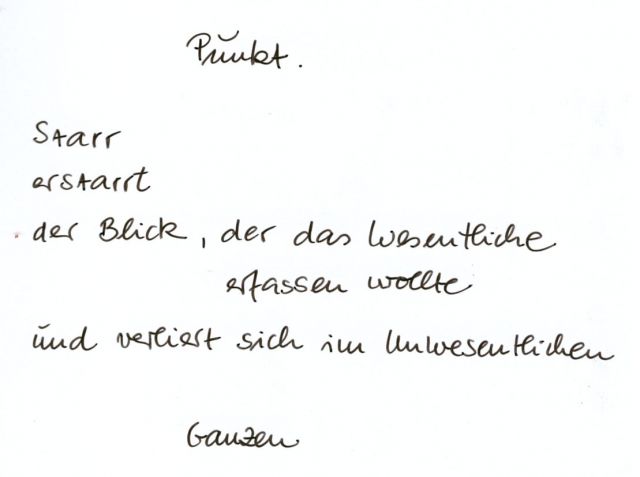 Punkt.
Starr
erstarrt
der Blick, der das Wesentliche
erfassen wollte
und verliert sich im Unwesentlichen
Ganzen